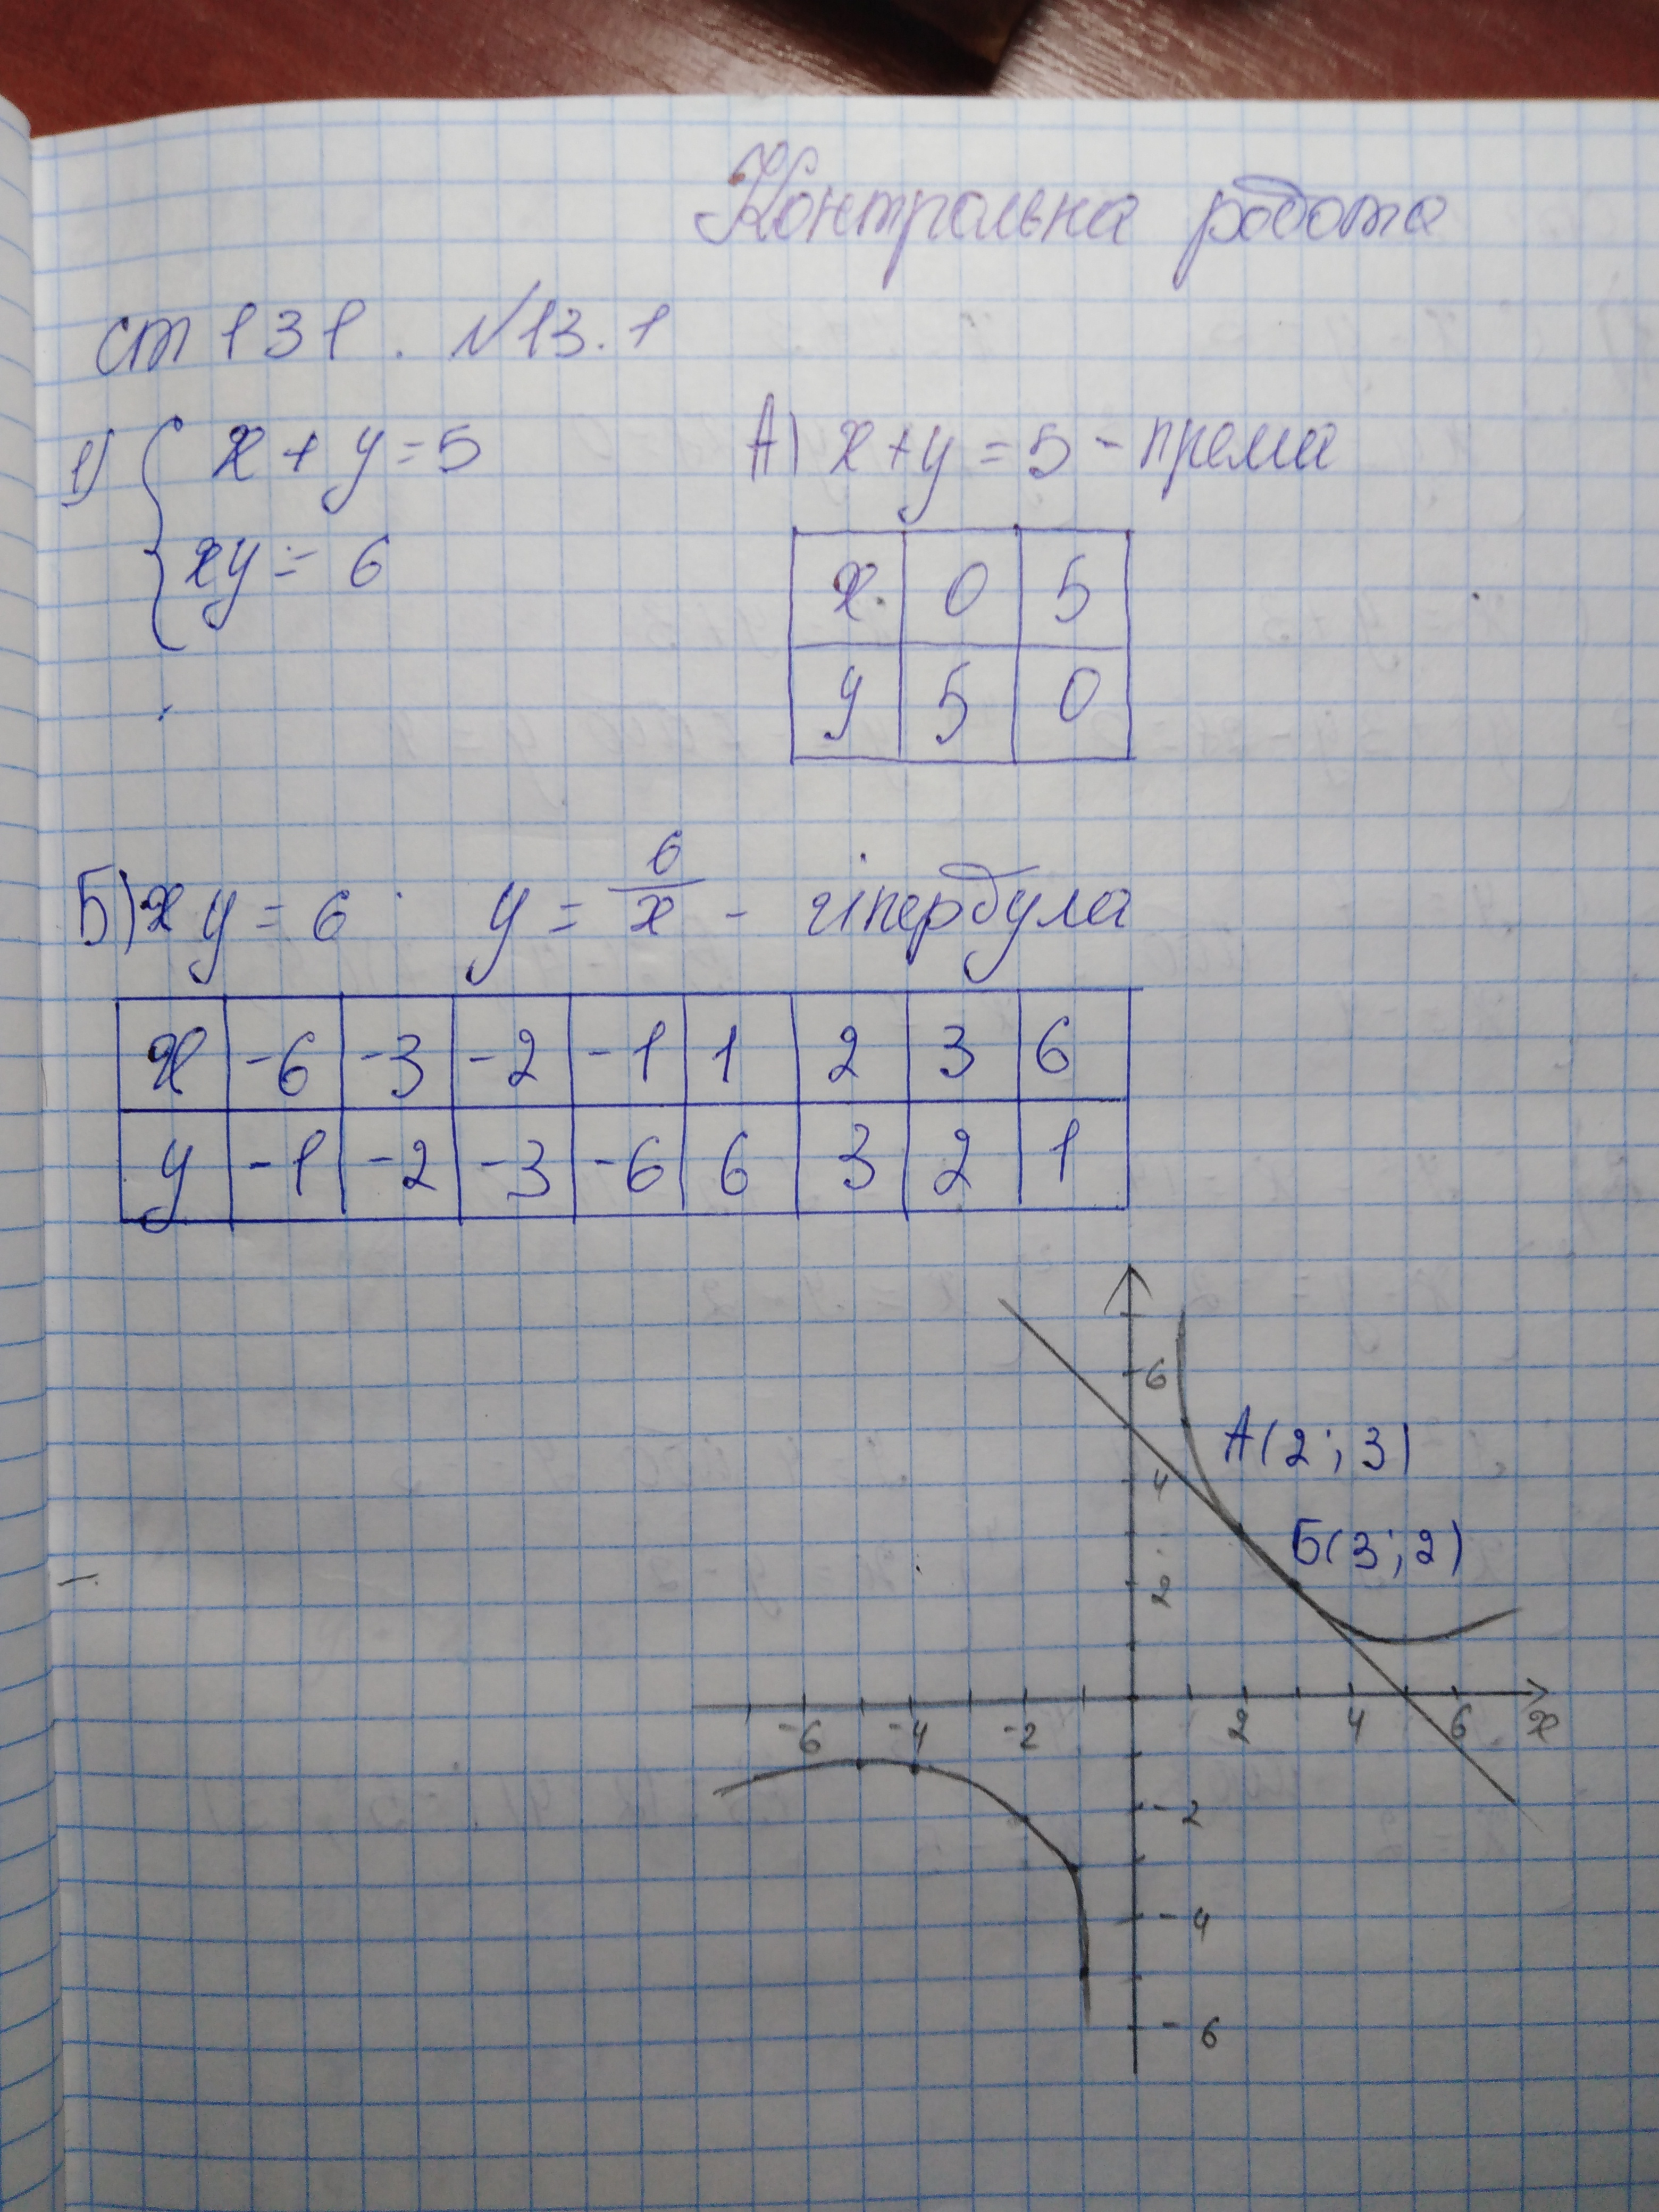 Контрольна робота
ст 131. №13.1
1) { x + y = 5
xy = 6
А) x + y = 5 - према
x 0 5
y 5 0
Б) xy = 6 y = 6/x - гіпердула
x -6 -3 -2 -1 1 2 3 6
y -1 -2 -3 -6 6 3 2 1
6
А(2; 3)
4
Б(3; 2)
2
-6 -4 -2 2 4 6 x
-2
-4
-6